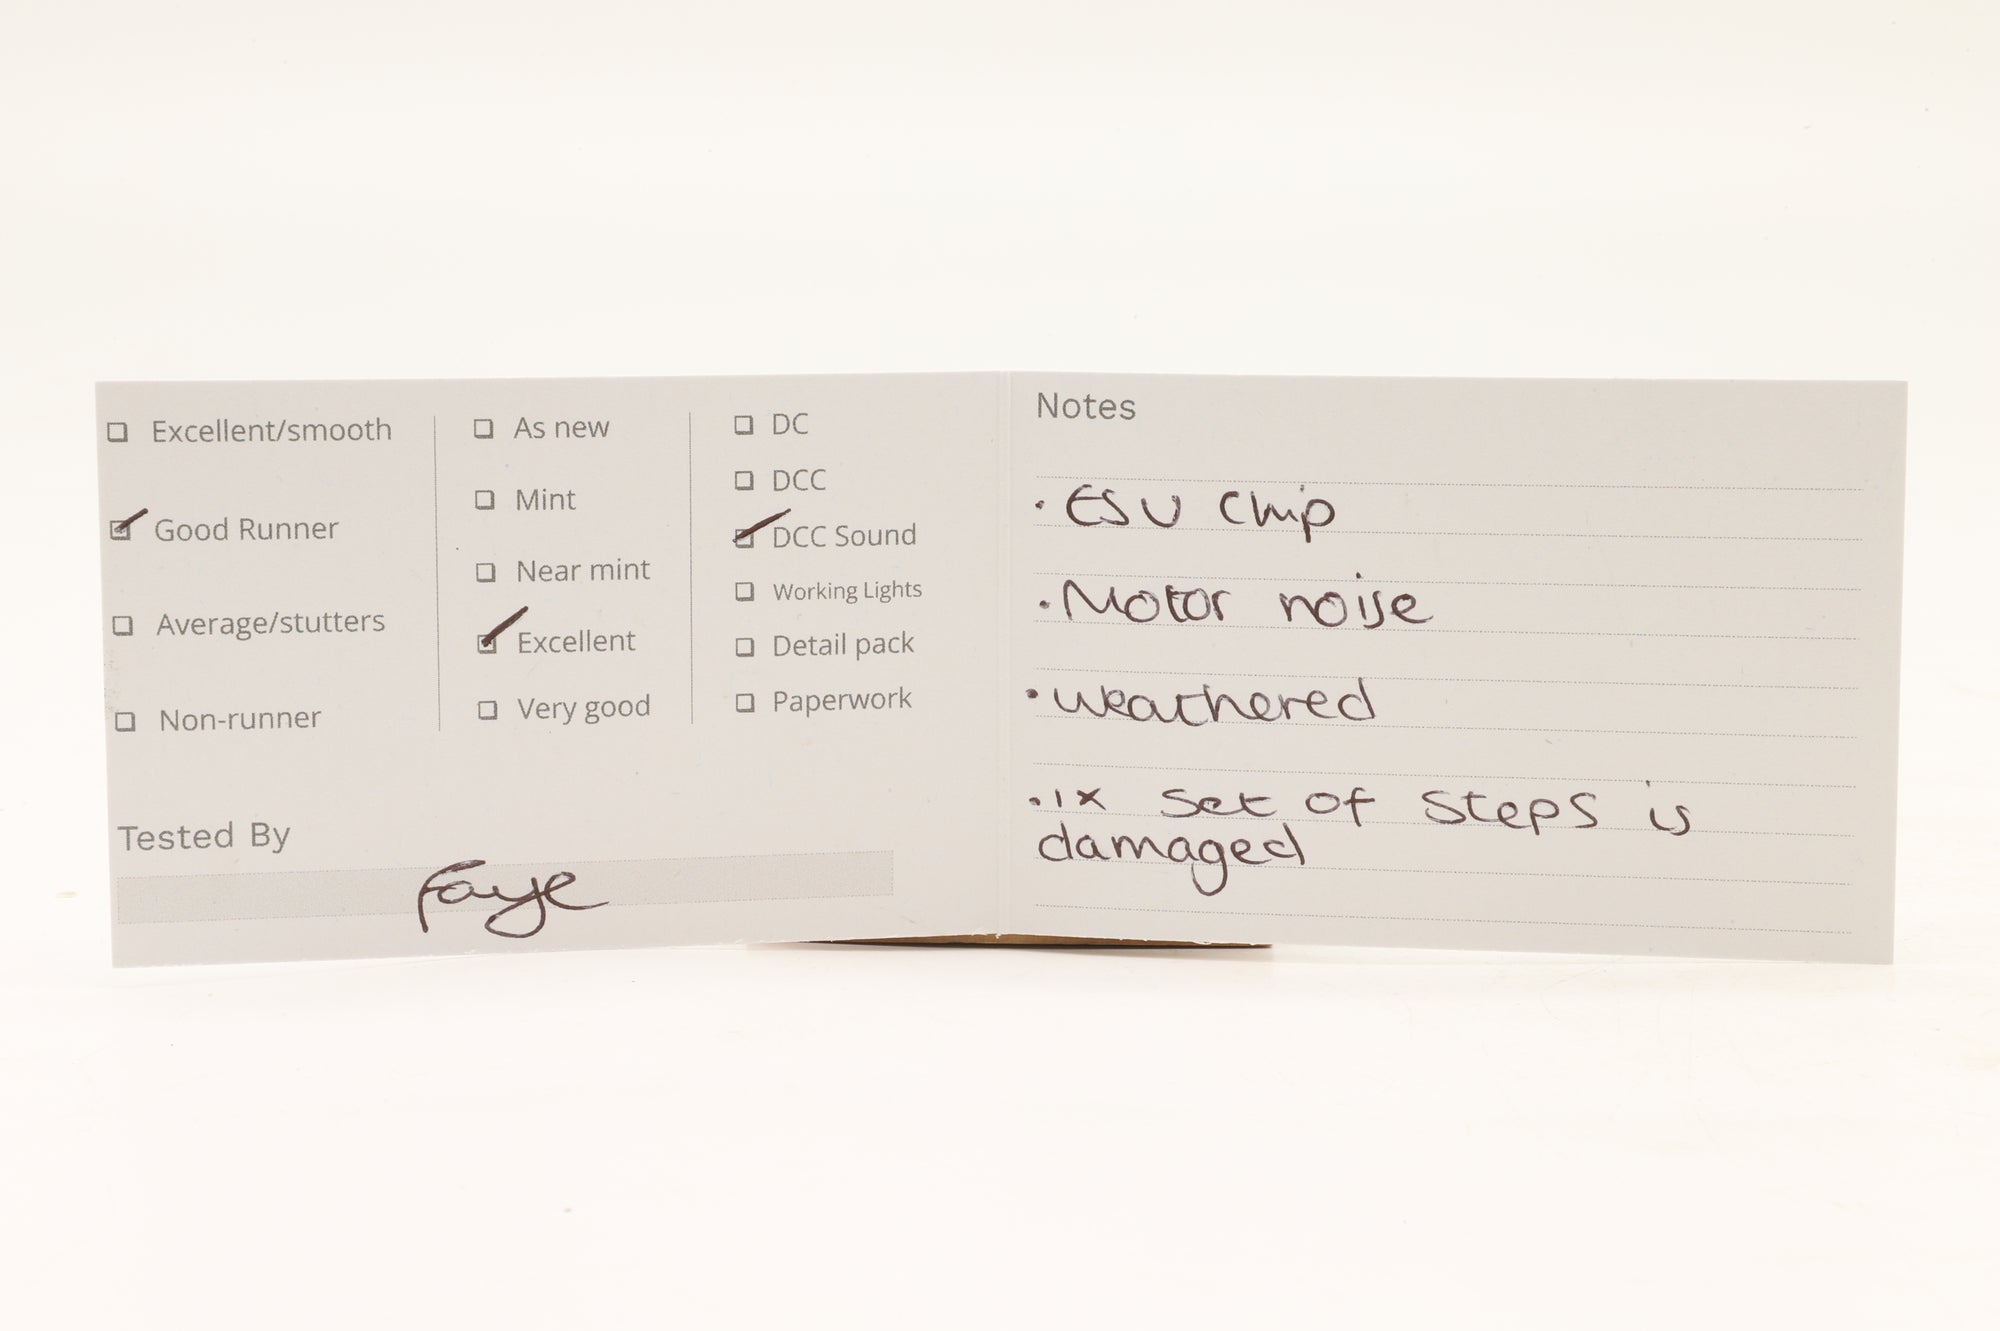 Excellent/smooth
Good Runner
Average/stutters
Non-runner
As new
Mint
Near mint
Excellent
Very good
DC
DCC
DCC Sound
Working Lights
Detail pack
Paperwork
Tested By
Faye
Notes
• ESU Chip
• Motor noise
• weathered
• 1x set of steps is
damaged